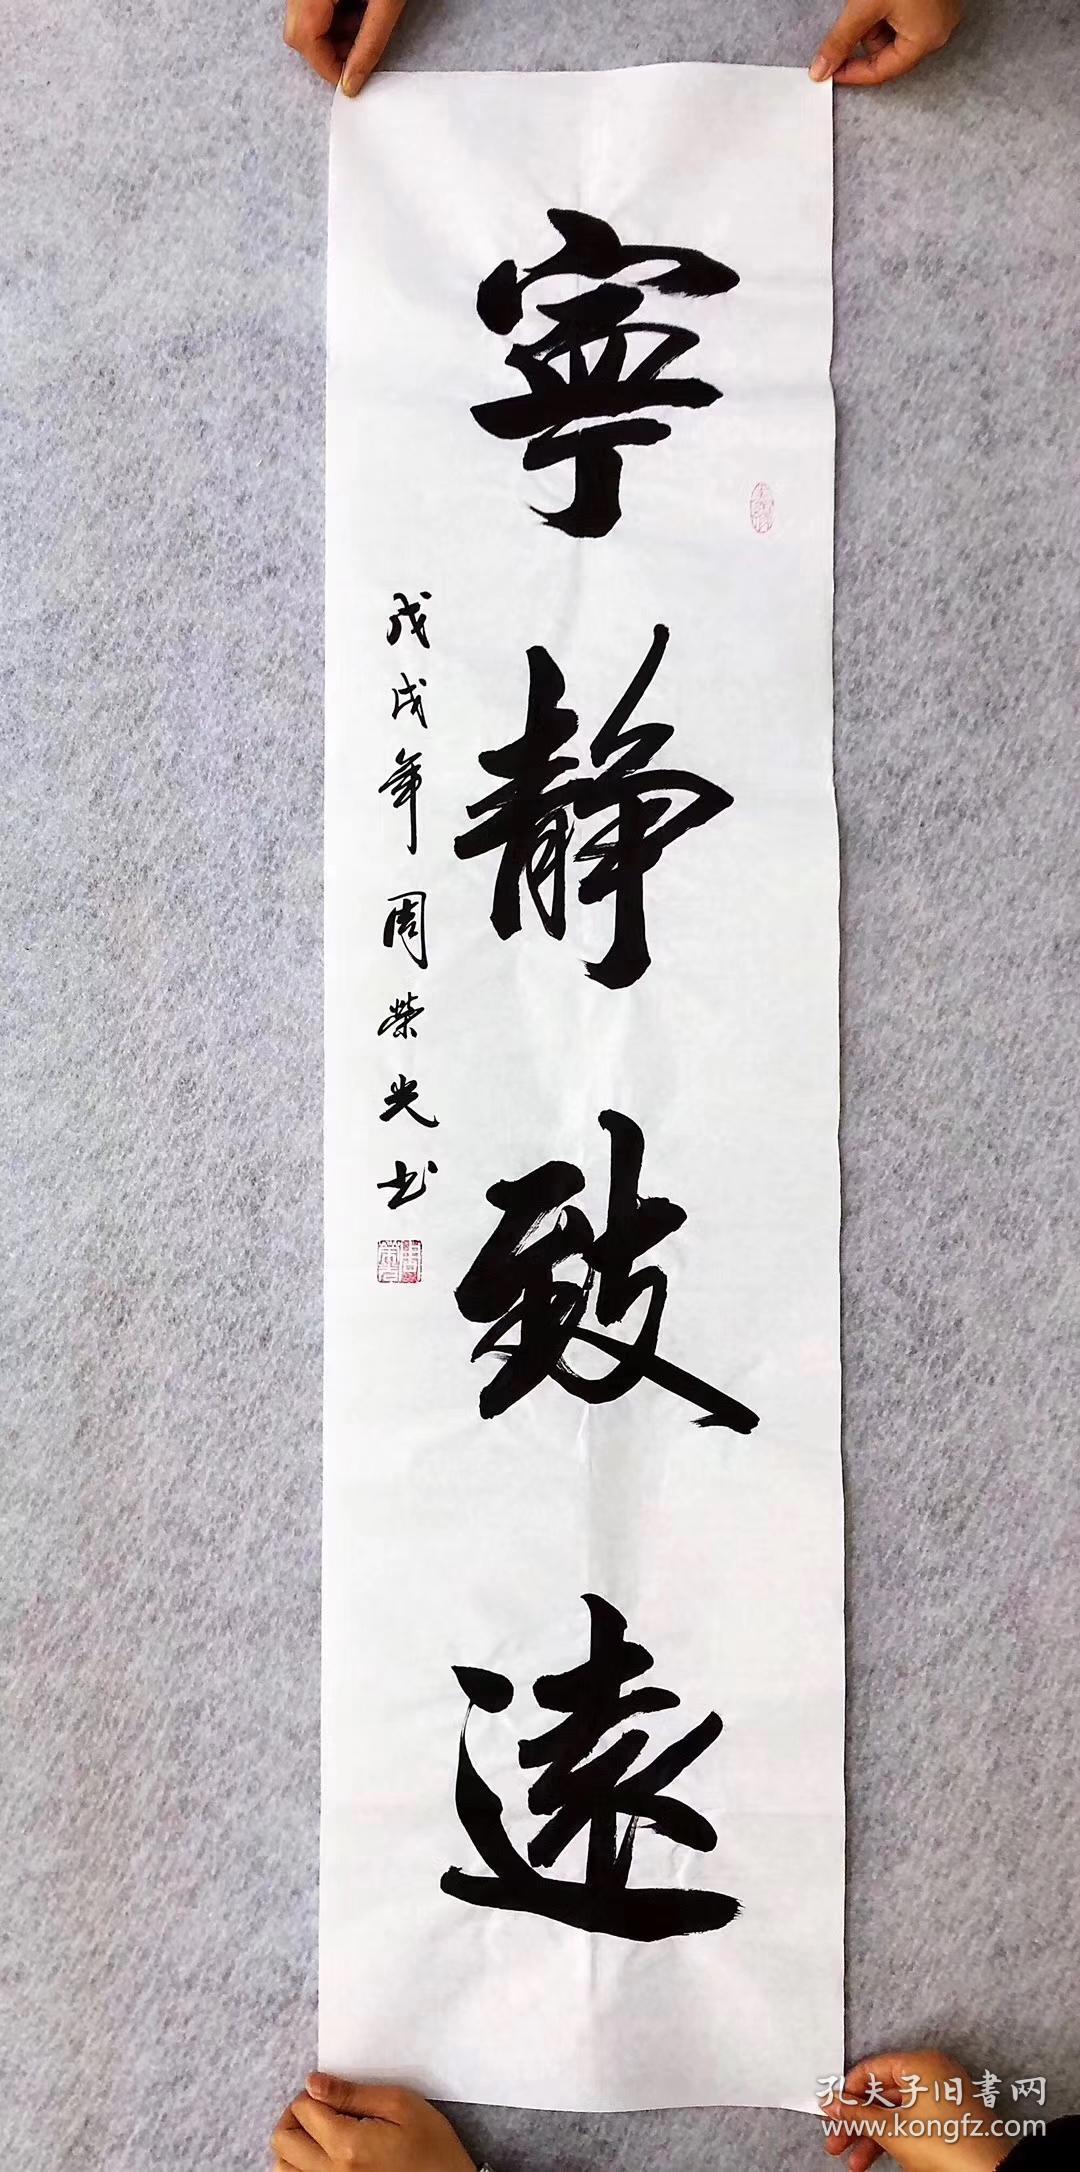 寧靜致遠
戊戌年周榮光书
孔夫子旧書网
www.kongfz.com